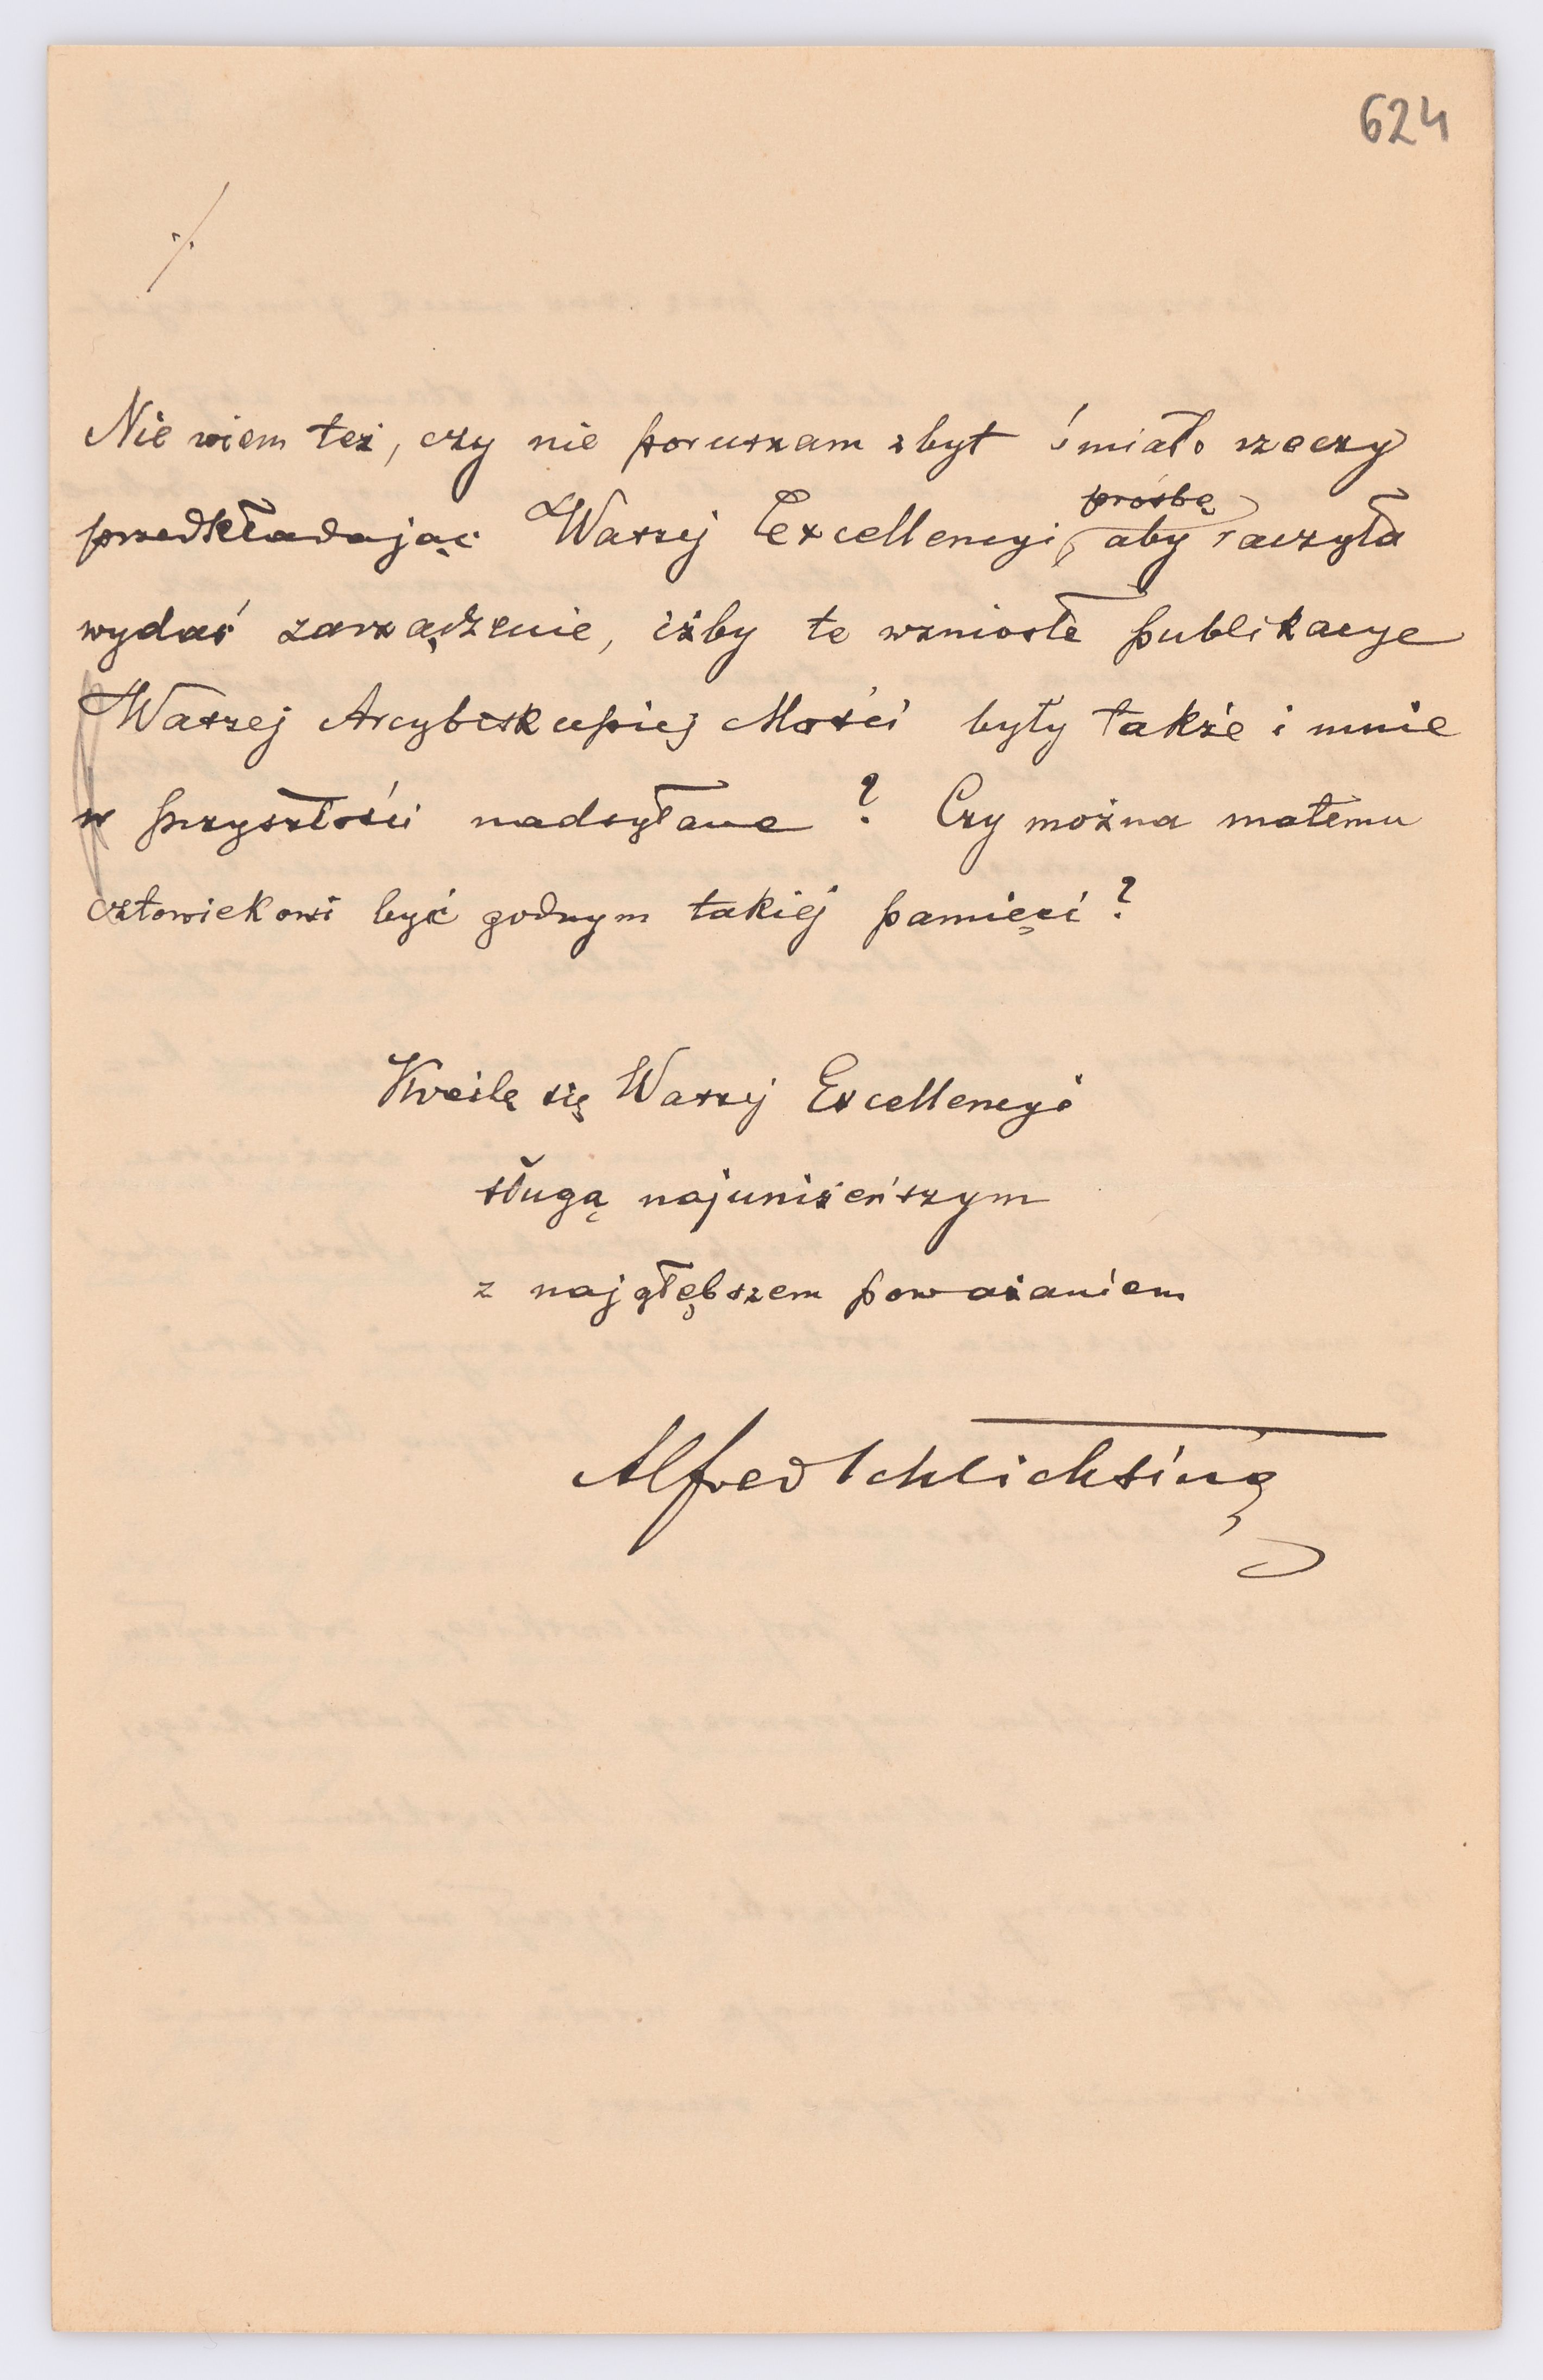 624
⁒
Nie wiem też, czy nie poruszam zbyt śmiało rzeczy
prośbę
przedkładając Waszej Excellencyi, aby raczyła
wydać zarządzenie, iżby te wzniosłe publikacye
Waszej Arcybiskupiej Mości były także i mnie
w przyszłości nadsyłane? Czy można małemu
człowiekowi być godnym takiej pamięci?
Kreślę się Waszej Excellencyi
sługą najuniżeńszym
z najgłębszem poważaniem
Alfred Schlichting